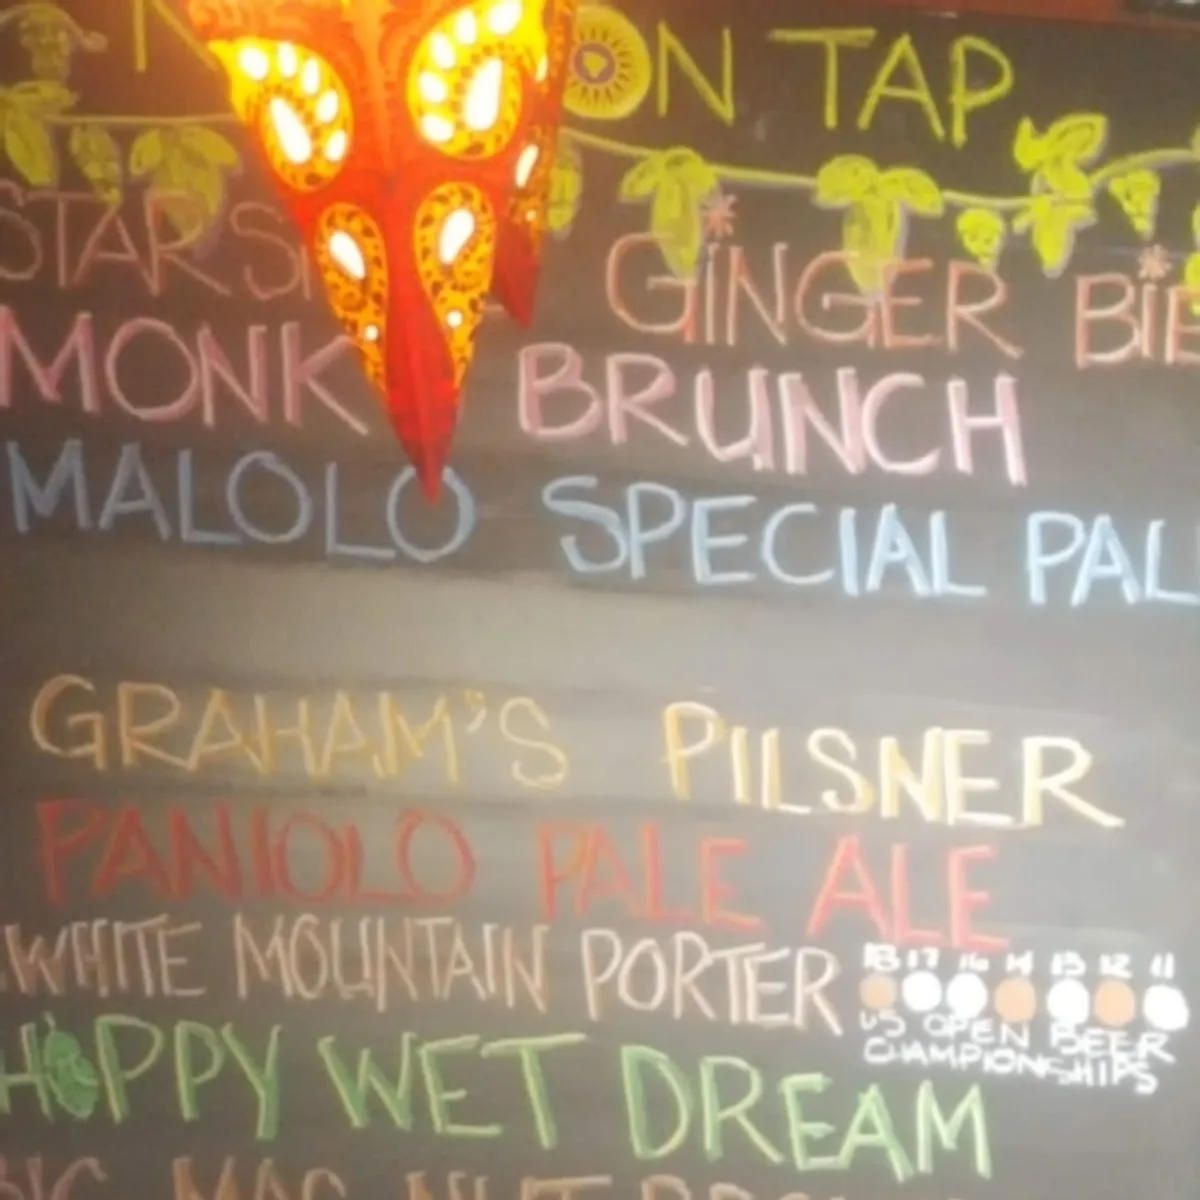 ON TAP
GINGER
MONK BRUNCH
MALOLO SPECIAL PAL
GRAHAM'S PILSNER
PANIOLO PALE ALE
WHITE MOUNTAIN PORTER
18 17 16 14 13 12 11
US OPEN BEER
CHAMPIONSHIPS
HOPPY WET DREAM
MAC NUT